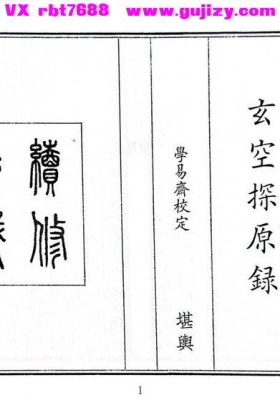 VX rbt7688 www.gujizy.com
玄空探原録
學易齋校定
堪輿
續修
1